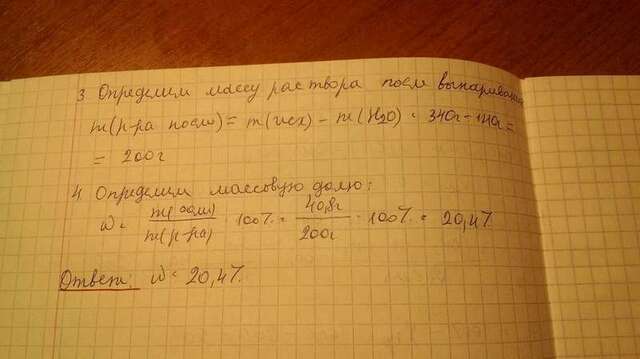 3 Определим массу раствора после выпаривания
m(р-ра после) = m(исх) - m(H2O) = 340г - 140г =
= 200г
4 Определим массовую долю:
w = m(соли) / m(р-ра) · 100% = 40,8г / 200г · 100% = 20,4%
Ответ: w = 20,4%.